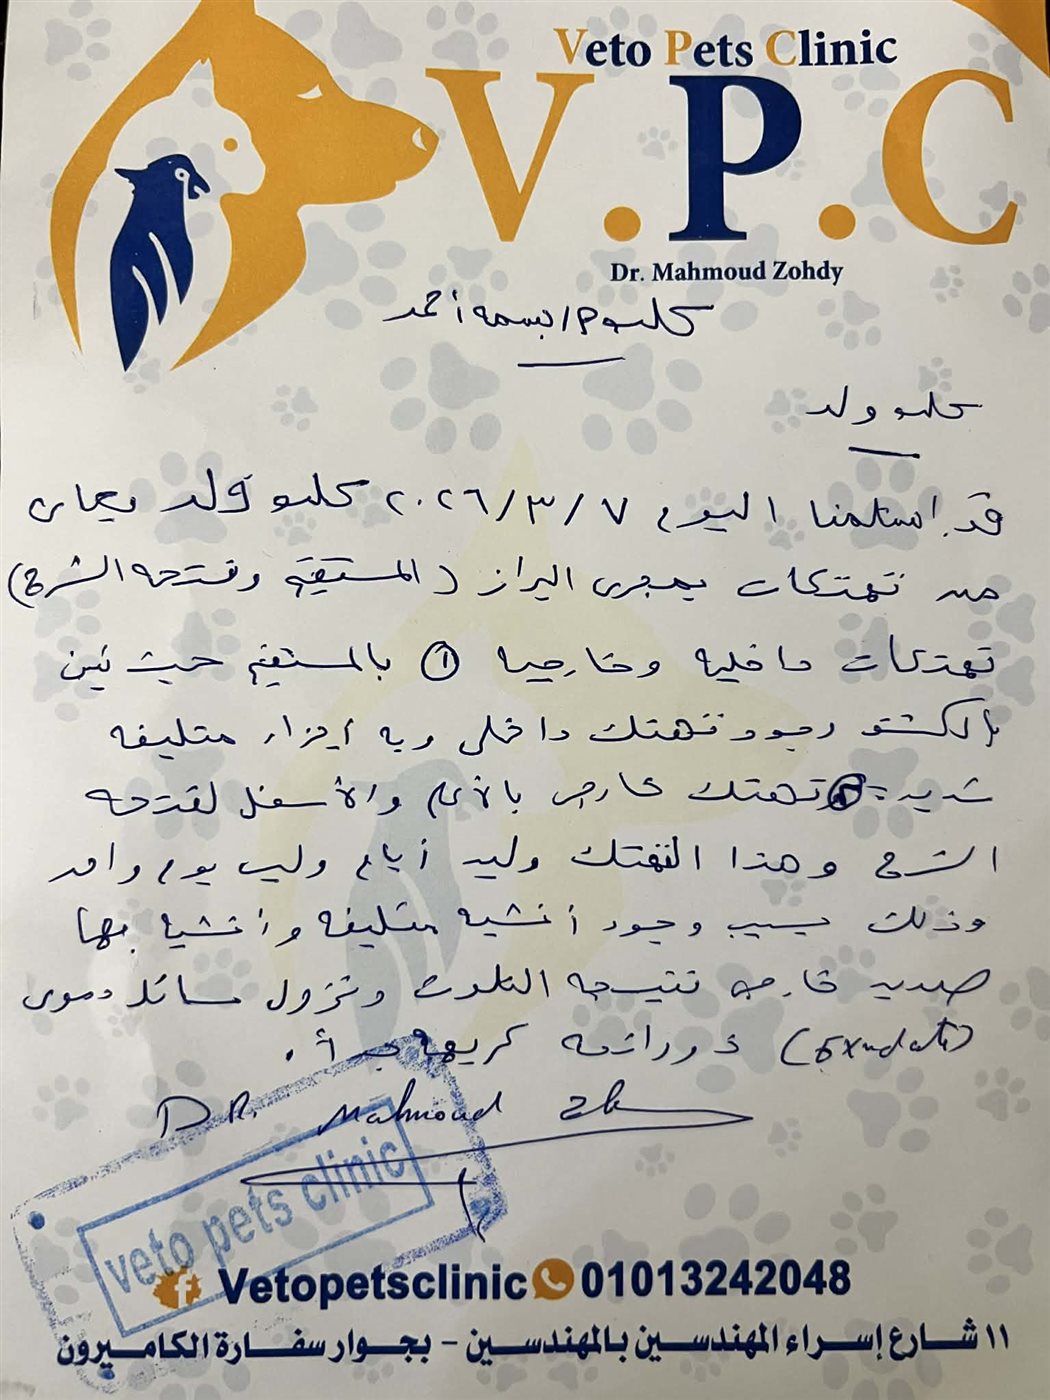 Veto Pets Clinic
V.P.C
Dr. Mahmoud Zohdy
بسمه أحمد
ولد
قد استلمنا اليوم ٢٠٢٦/٣/٧ ولد يعانى
من تهتكات بمجرى البراز (المستقيم وفتحه الشرج)
تهتكات داخليه وخارجيه ① بالمستقيم حيث تبين
بالكشف وجود تهتك داخلى وبه متليفه
شديد تهتك خارجى والأسفل لفتحه
الشرج وهذا التهتك وليد أيام وليس يوم واحد
وذلك بسبب وجود أنسجه متليفه وأنسجه بها
صديد خارجه نتيجه التلوث ونزول سائل دموى
(Exudate) ذو رائحه كريهه
DR. Mahmoud
veto pets clinic
Vetopetsclinic 01013242048
١١ شارع إسراء المهندسين بالمهندسين - بجوار سفارة الكاميرون